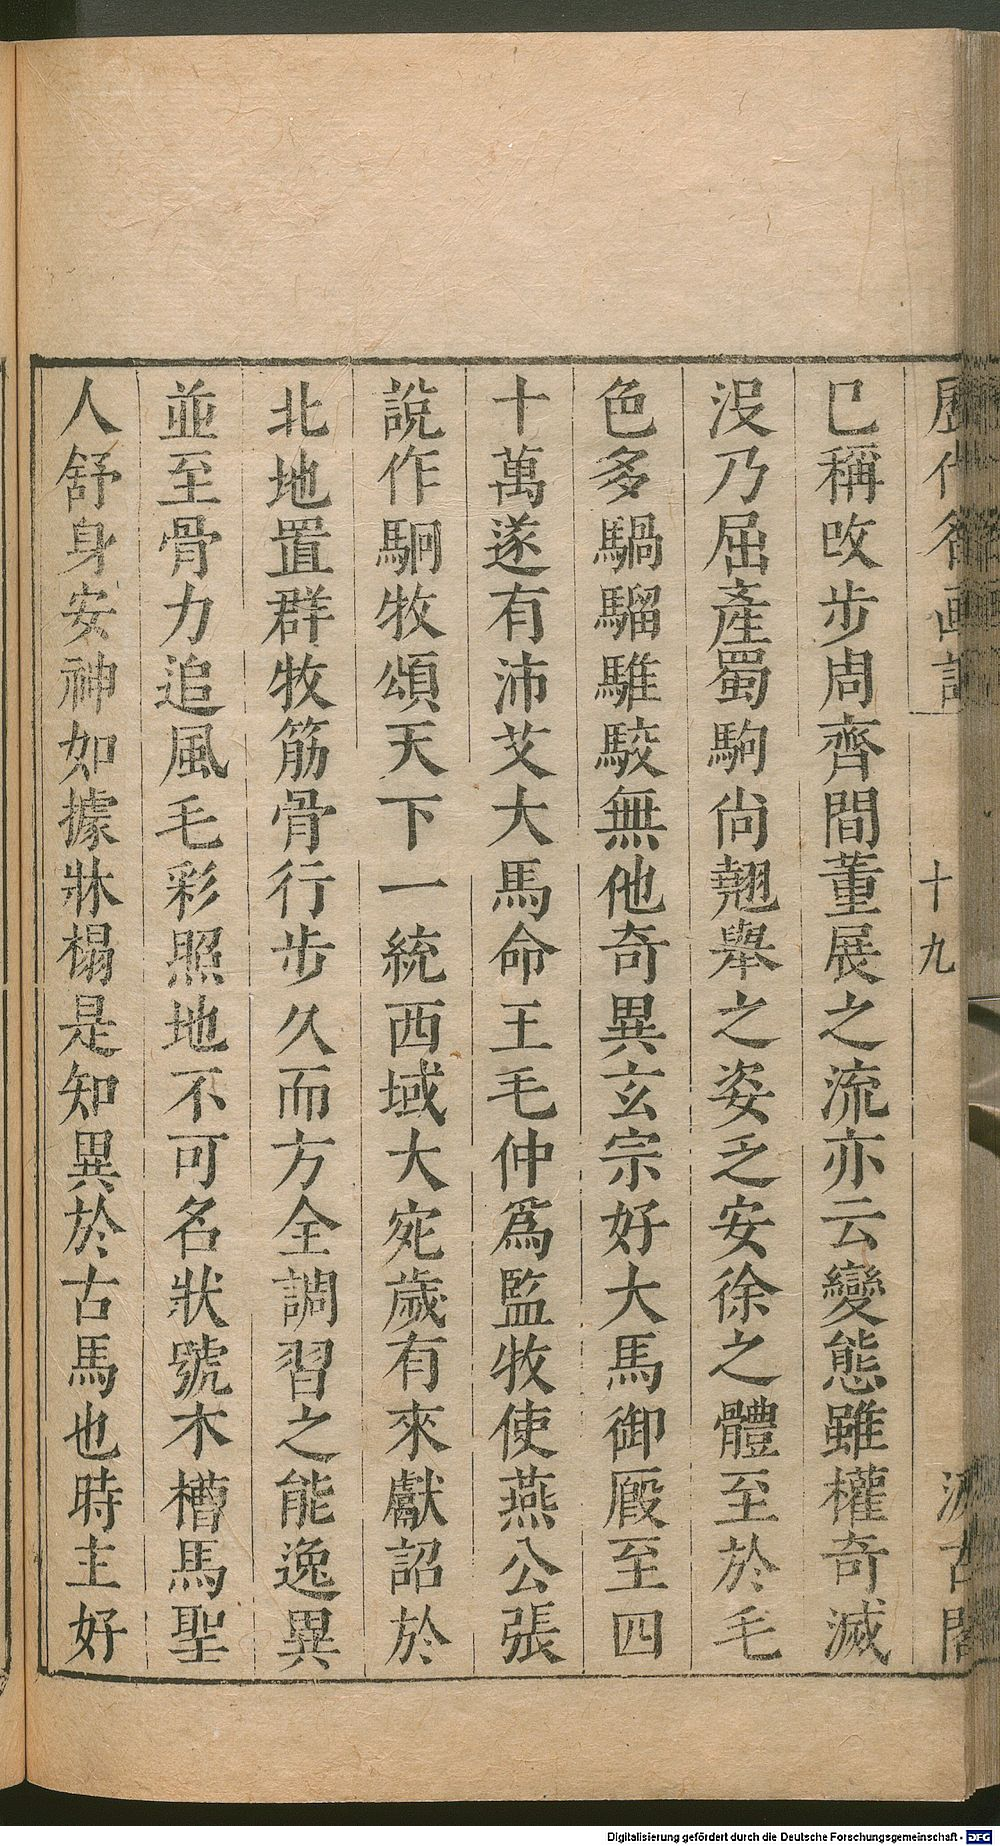 歷代名画記
十九
汲古閣
巳稱改步周齊間董展之流亦云變態雖權奇滅
没乃屈產蜀駒尚翹舉之姿乏安徐之體至於毛
色多騧騮騅駮無他奇異玄宗好大馬御廐至四
十萬遂有沛艾大馬命王毛仲爲監牧使燕公張
說作駉牧頌天下一統西域大宛歲有來獻詔於
北地置群牧筋骨行步久而方全調習之能逸異
並至骨力追風毛彩照地不可名狀號木槽馬聖
人舒身安神如據牀榻是知異於古馬也時主好
Digitalisierung gefördert durch die Deutsche Forschungsgemeinschaft - DFG